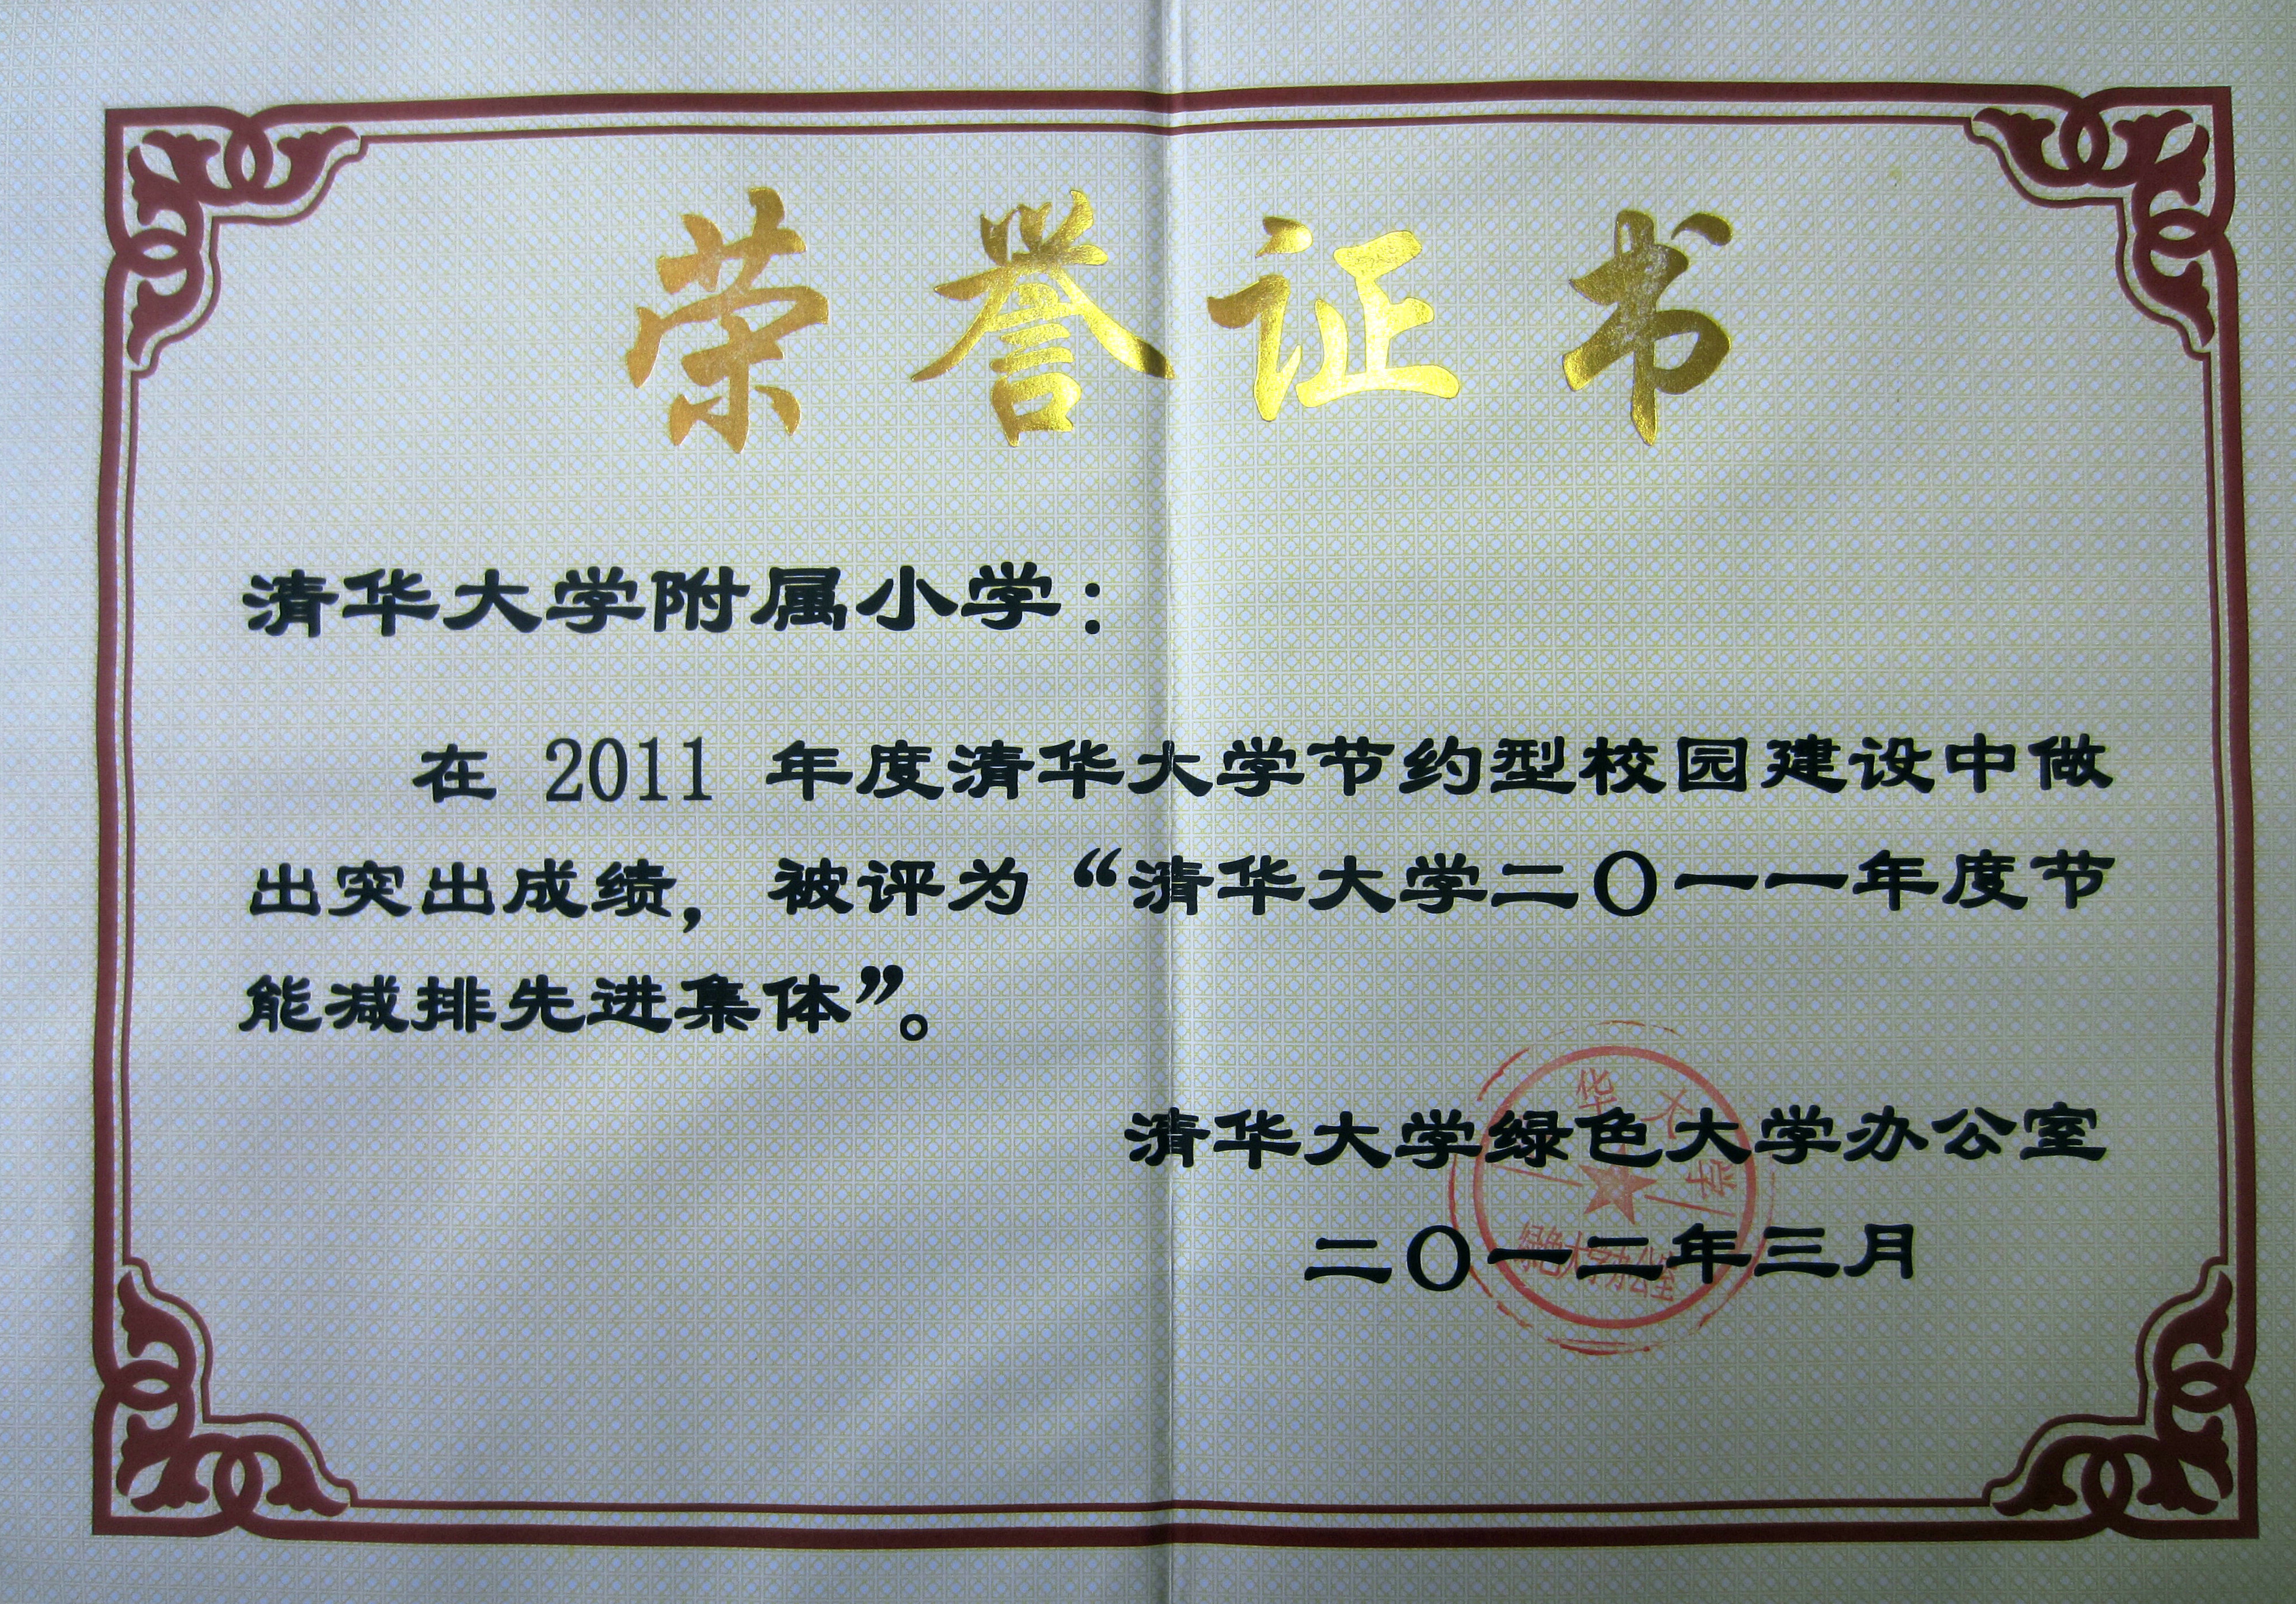 荣誉证书
清华大学附属小学：
在 2011 年度清华大学节约型校园建设中做
出突出成绩，被评为“清华大学二〇一一年度节
能减排先进集体”。
清华大学绿色大学办公室
二〇一二年三月
华大学
绿色大学办公室